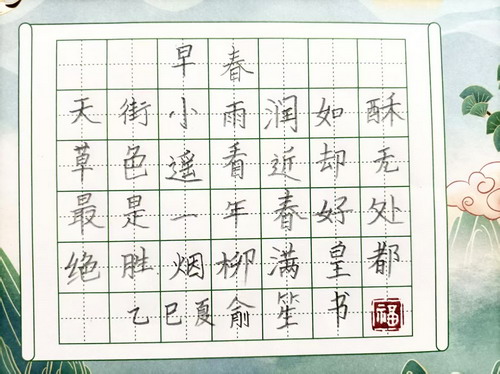 早春
天街小雨润如酥
草色遥看近却无
最是一年春好处
绝胜烟柳满皇都
乙巳夏俞笙书
福